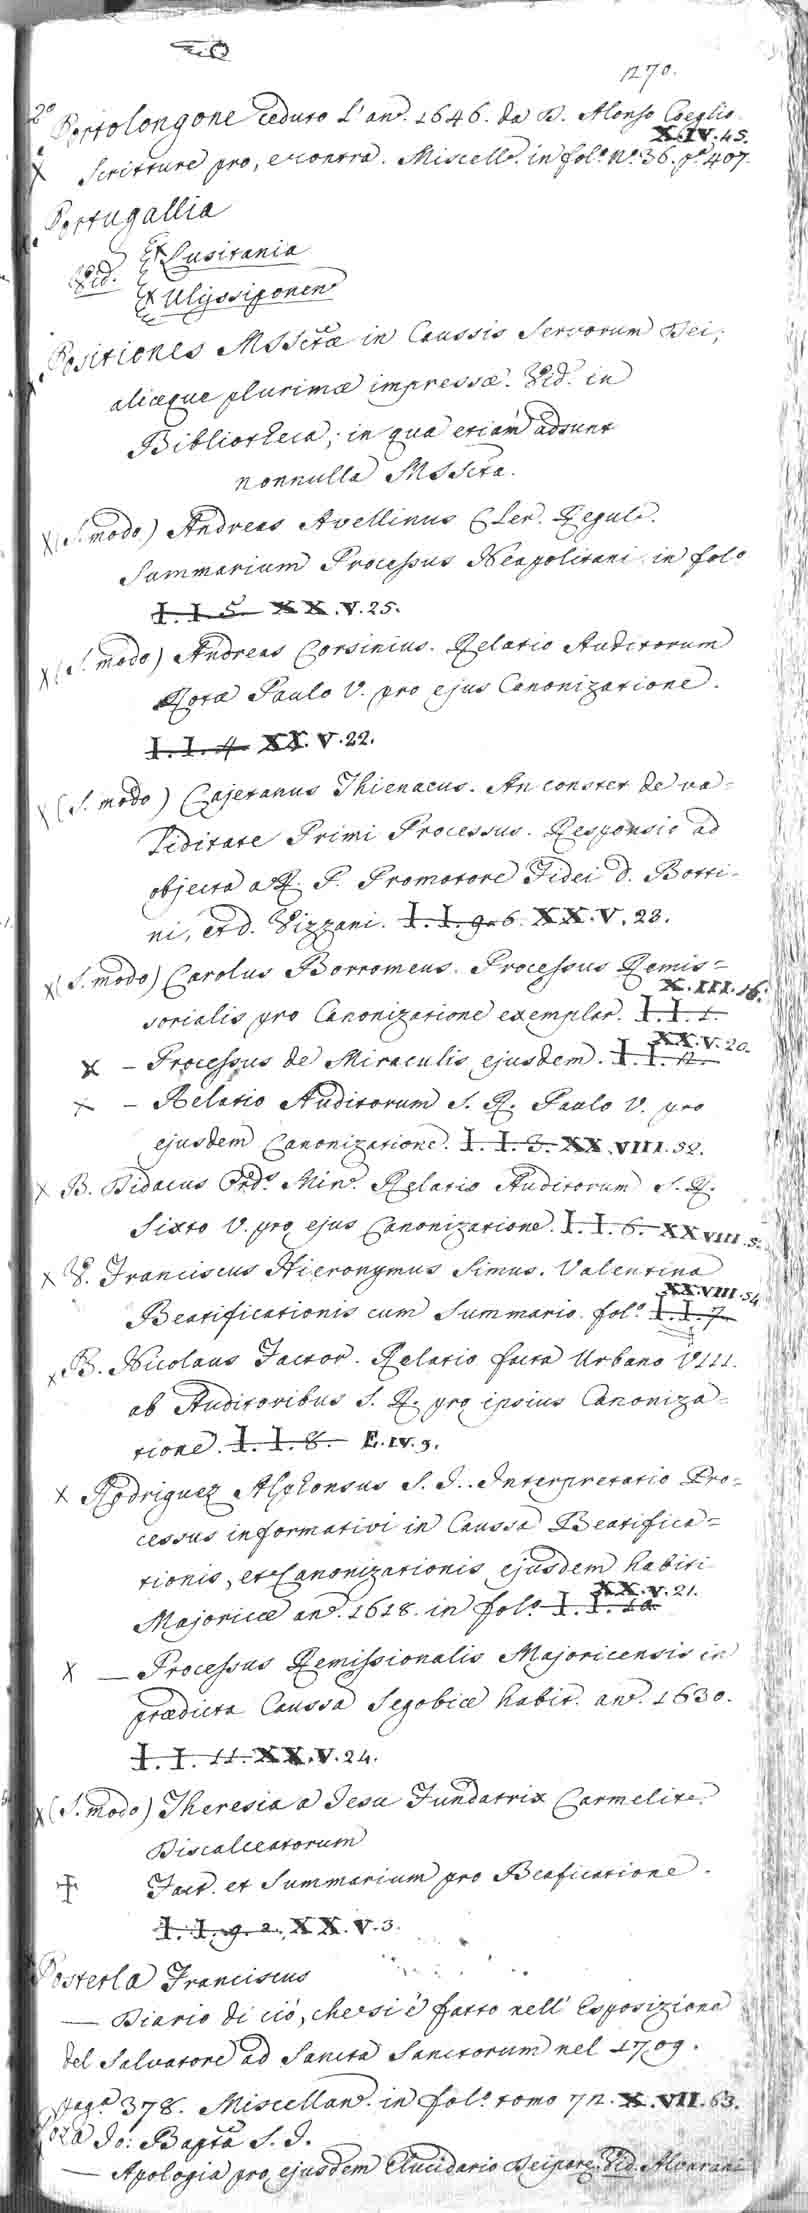 270.
2º Portolongone ceduto l'anº. 1646. da D. Alonso Coeglio.
X.IV.45.
X Scritture pro, e contra. Miscellº. in folº. nº. 36. pª 407.
Portugallia
Vid. X Lusitania
X Ulyssiponen
Positiones MSSctæ in Caussis Servorum Dei;
aliæque plurimæ impressæ. Vid. in
Bibliotheca; in qua etiam adsunt
nonnulla MSScta.
X (S. modo) Andreas Avellinus Cler. Regul.
Summarium Processus Neapolitani in folº
I. I. 5. XX.V.25.
X (S. modo) Andreas Corsinius. Relatio Auditorum
Rotæ Paulo V. pro ejus Canonizatione.
I. I. 4. XX.V.22.
X (S. modo) Cajetanus Thienaeus. An constet de va=
liditate Primi Processus. Responsio ad
objecta a R. P. Promotore Fidei D. Botti-
ni, et D. Vizzani. I. I. 9. 6. XX.V.23.
X (S. modo) Carolus Borromeus. Processus Remis=
X.III.16.
sorialis pro Canonizatione exemplar. I. I. 1.
XX.V.20.
X – Processus de Miraculis ejusdem. I. I. 2.
X – Relatio Auditorum S. R. Paulo V. pro
ejusdem Canonizatione. I. I. 3. XX.VIII.52.
X B. Didacus Ordº. Minº. Relatio Auditorum S. R.
Sixto V. pro ejus Canonizatione. I. I. 6. XXVIII.
X V. Franciscus Hieronymus Simus. Valentina
XX.VIII.54
Beatificationis cum Summario. folº. I. I. 7.
X B. Nicolaus Factor. Relatio facta Urbano VIII.
ab Auditoribus S. R. pro ipsius Canoniza=
tione. I. I. 8. E.IV.9.
X Rodriguez Alphonsus S. J.. Interpretatio Pro=
cessus informativi in Caussa Beatifica=
tionis, et Canonizationis ejusdem habiti
XX.V.21.
Majoricæ anº. 1618. in folº. I. I. 10.
X — Processus Remissionalis Majoricensis in
prædicta Caussa Segobiæ habit. anº. 1630.
I. I. 11. XX.V.24.
X (S. modo) Theresia a Jesu Fundatrix Carmelit.
Discalceatorum
Fact. et Summarium pro Beaficatione.
I. I. 9. 2. XX.V.3.
Posterla Franciscus
— Diario di ciò, che si è fatto nell' Esposizione
del Salvatore ad Sancta Sanctorum nel 1709.
pagª 378. Miscellanº. in folº. tomo 72. X.VII.63.
Poza Jo: Bapta S. J.
— Apologia pro ejusdem Elucidario Deiparæ. Vid. Alvarani